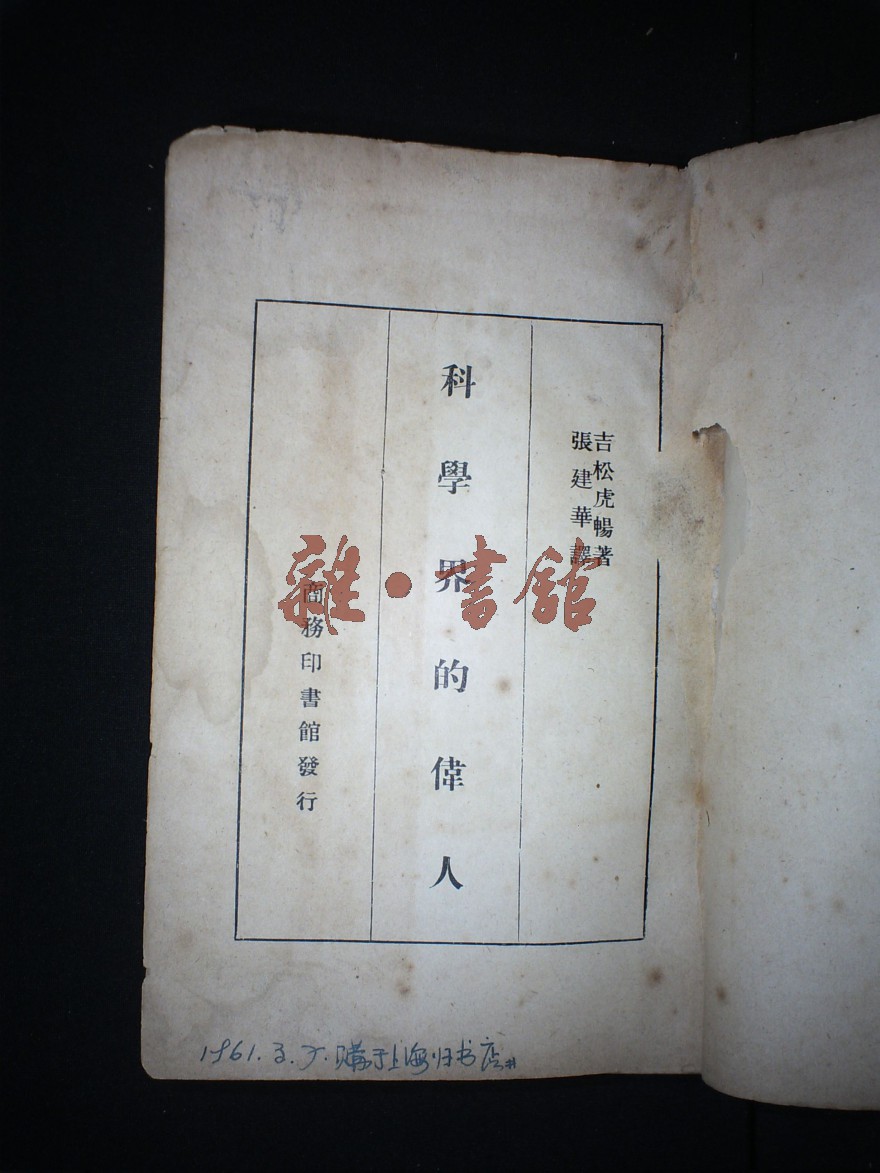 吉松虎暢著
張建華譯
科學界的偉人
商務印書館發行
雜·書館
1961.3.5.購于上海旧书店